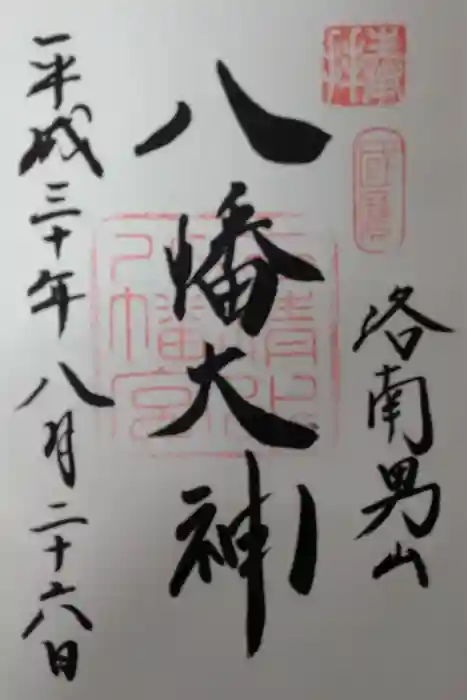 奉拝
国寶
洛南男山
八幡大神
石清水八幡宮
平成三十年八月二十六日